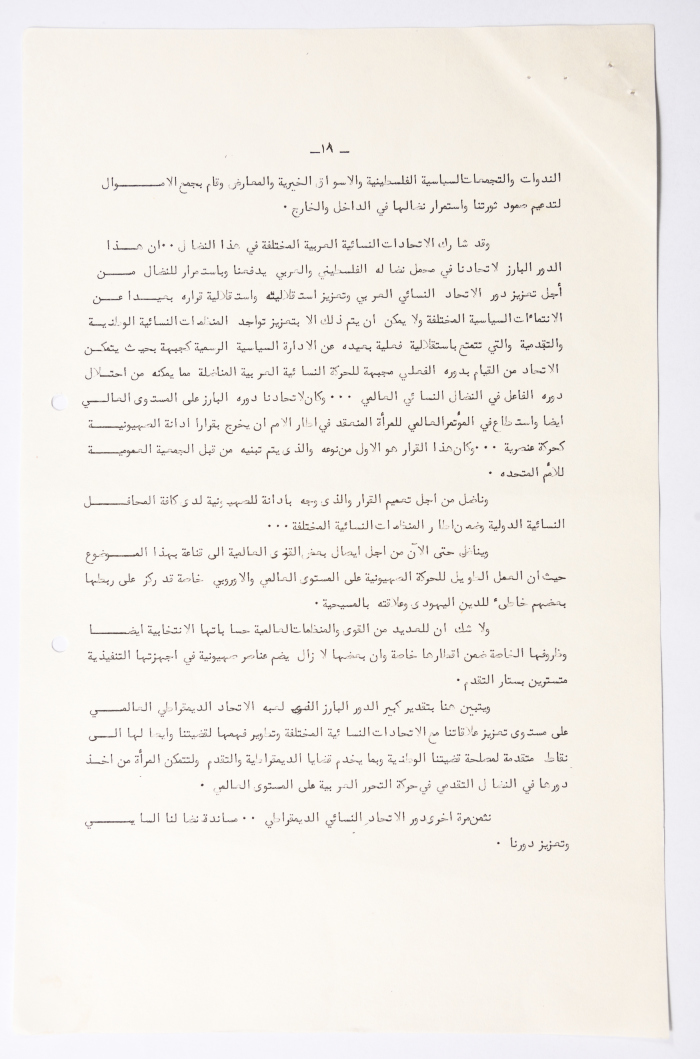 ــ ١٨ــ
الندوات والتجمعات السياسية الفلسطينية والاسواق الخيرية والمعارض وقام بجمع الامـــــوال
لتدعيم صمود ثورتنا واستمرار نضالها في الداخل والخارج .
وقد شارك الاتحادات النسائية العربية المختلفة في هذا النضال ٠٠ ان هـــذا
الدور البارز لاتحادنا في مجمل نضاله الفلسطيني والعربي يدفعنا وباستمرار للنضال مـــن
أجل تعزيز دور الاتحاد النسائي العربي وتعزيز استقلاليته واستقلالية قراره بعيـــدا عـــن
الانتماءات السياسية المختلفة ولا يمكن ان يتم ذلك الا بتعزيز تواجد المنظمات النسائية الوطنيـة
والتقدمية والتي تتمتع باستقلالية فعلية بعيده عن الادارة السياسية الرسمية كجبهة بحيث يتمكـن
الاتحاد من القيام بدوره الفعلي كجبهة للحركة النسائية العربية المناضلة مما يمكنه من احتـلال
دوره الفاعل في النضال النسائي العالمي ٠٠٠ وكان لاتحادنا دوره البارز على المستوى العالمـي
ايضا واستطاع في المؤتمر العالمي للمرأة المنعقد في اطار الامم ان يخرج بقرارا ادانة الصهيونيــة
كحركة عنصرية ٠٠٠ وكان هذا القرار هو الاول من نوعه والذي يتم تبنيه من قبل الجمعية العموميــة
للأمم المتحده .
وناضل من اجل تعميم القرار والذي وجه بادانة للصهيونية لدى كافة المحافـــل
النسائية الدولية وضمن اطار المنظمات النسائية المختلفة ٠٠٠
ويناضل حتى الآن من اجل ايصال بعض القوى العالمية الى قناعة بهذا المـــوضوع
حيث ان العمل الطويل للحركة الصهيونية على المستوى العالمي والاوروبي خاصة قد ركز على ربطها
بعضهم خاطئ للدين اليهودي وعلاقته بالمسيحية .
ولا شك ان للعديد من القوى والمنظمات العالمية حساباتها الانتخابية ايضـــا
وظروفها الخاصة ضمن اقطارها خاصة وان بعضها لا زال يضم عناصر صهيونية في اجهزتها التنفيذية
متسترين بستار التقدم .
ويتبين هنا بتقدير كبير الدور البارز الذي لعبه الاتحاد الديمقراطي العالمـــي
على مستوى تعزيز علاقاتنا مع الاتحادات النسائية المختلفة وتطوير فهمها لقضيتنا وايصالها الـــى
نقاط متقدمة لمصلحة قضيتنا الوطنية وبما يخدم قضايا الديمقراطية والتقدم ولتتمكن المرأة من اخـذ
دورها في النضال التقدمي في حركة التحرر العربية على المستوى العالمي .
نثمن مرة اخرى دور الاتحاد النسائي الديمقراطي ٠٠ مساندة نضالنا
وتعزيز دورنا .